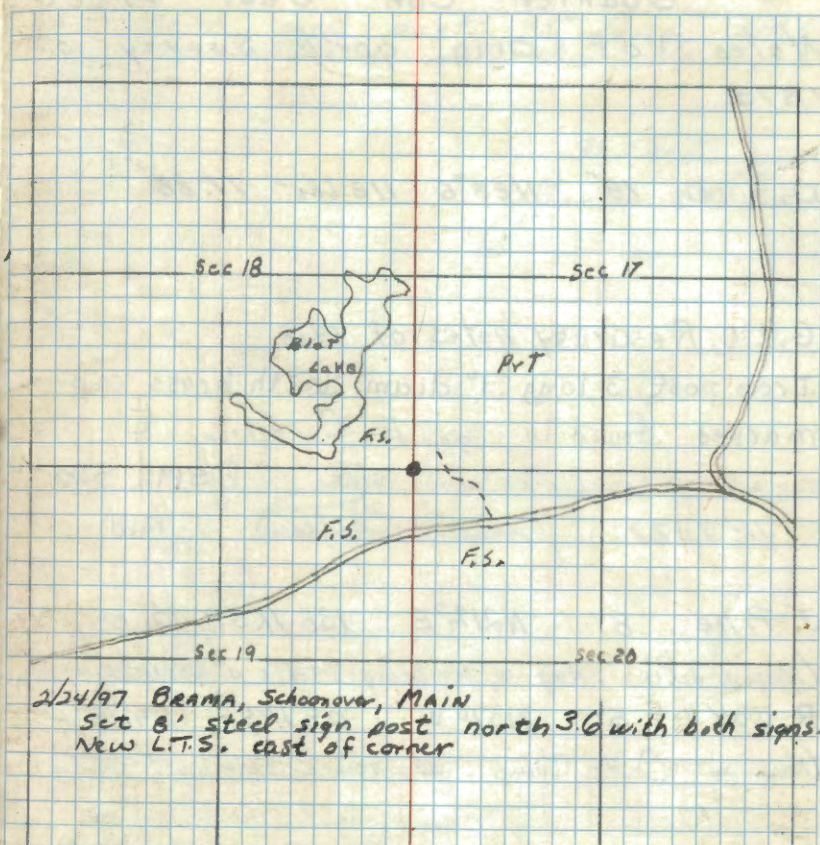 Sec 18 Sec 17
Blat
Lake
PrT
F.S.
F.S.
F.S.
Sec 19 Sec 20
2/24/97 BRAMA, Schoonover, MAIN
Set 8' steel sign post north 3.6 with both signs.
New L.T.S. east of corner